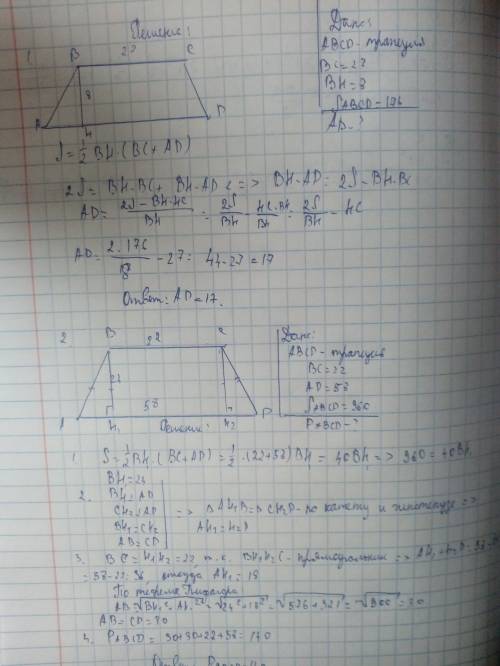 Решение:
1.
B 27 C
8
A H D
Дано:
ABCD - трапеция
BC=27
BH=8
AD-?
S=1/2 BH·(BC+AD)
2S= BH·BC+ BH·AD <=> BH·AD= 2S-BH·BC
AD= (2S-BH·HC)/BH = 2S/BH - HC·BH/BH = 2S/BH - HC
AD= 2·176/8 -27= 44-27=17
Ответ: AD=17.
2
B 22 C
24
58
A H₁ H₂ D
Решение:
Дано:
ABCD - трапеция
BC=22
AD=58
SABCD=960
PABCD-?
1. S=1/2 BH₁·(BC+AD)=1/2·(22+58)BH₁=40BH₁ => 960=40BH₁
BH₁=24
2. BH₁⊥AD
CH₂⊥AD
BH₁=CH₂
AB=CD
=> ΔAH₁B=ΔCH₂D - по катету и гипотенузе =>
AH₁=H₂D
3. BC=H₁H₂=22 т.к. BH₁H₂C - прямоугольник => AH₁+H₂D=58-22
=58-22=36, откуда AH₁=18
По теореме Пифагора
AB=√BH₁²+AH₁²=√24²+18²=√576+324=√900=30
AB=CD=30
4. PABCD=30+30+22+58=140